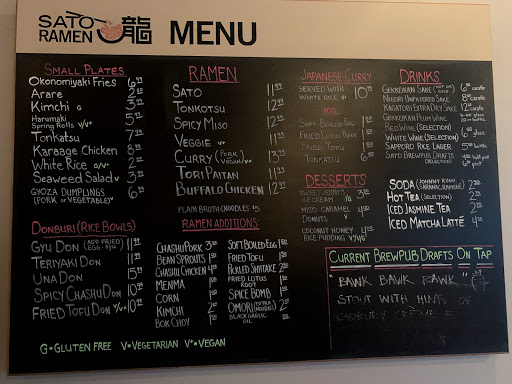 SATO
RAMEN 龍 MENU
SMALL PLATES
OKONOMIYAKI FRIES 6
ARARE 2
KIMCHI G 3
HARUMAKI
SPRING ROLLS V/V+ 5
TONKATSU 7
KARAAGE CHICKEN 8
WHITE RICE G/V+ 2
SEAWEED SALAD V 3
GYOZA DUMPLINGS
(PORK OR VEGETABLE) V 6
DONBURI (RICE BOWLS)
GYU DON (ADD FRIED EGG) 11
TERIYAKI DON 11
UNA DON 15
SPICY CHASHU DON 10
FRIED TOFU DON V/V+ 10
RAMEN
SATO 11
TONKOTSU 12
SPICY MISO 12
VEGGIE V+ 11
CURRY (PORK, VEGAN) V+ 13
TORI PAITAN 11
BUFFALO CHICKEN 12
PLAIN BROTH (NOODLES)
RAMEN ADDITIONS
CHASHU PORK 3
BEAN SPROUTS 1
CHASHU CHICKEN 4
MENMA 1
CORN 1
KIMCHI 2
BOK CHOY 1
SOFT BOILED EGG 1
FRIED TOFU 1
PICKLED SHIITAKE 2
FRIED LOTUS
ROOT 1
SPICE BOMB 1
OMORI (EXTRA NOODLES) 2
BLACK GARLIC
OIL
JAPANESE CURRY
SERVED WITH
WHITE RICE V 10
ADD
SOFT-BOILED EGG 1
FRIED LOTUS ROOT 1
FRIED TOFU 1
TONKATSU 6
DESSERTS
SWEET JENNY'S
ICE CREAM G 3
MISO CARAMEL
DONUTS V 4
COCONUT HONEY
RICE PUDDING V/G 4
DRINKS
GEKKEIKAN SAKE (HOT OR COLD) 6 CARAFE
NIGORI UNFILTERED SAKE 8 CARAFE
KAGATOBI EXTRA DRY SAKE 12 CARAFE
GEKKEIKAN PLUM WINE 6
RED WINE (SELECTION)
WHITE WINE (SELECTION)
SAPPORO RICE LAGER 5 BOTTLE
SATO BREWPUB DRAFTS
(SELECTION) 4 HALF PINT
PINT
SODA (JOHNNY RYAN, SARANAC, RAMUNE) 2
HOT TEA (SELECTION) 2
ICED JASMINE TEA 2
ICED MATCHA LATTE 4
CURRENT BREWPUB DRAFTS ON TAP
"BAWK BAWK BAWK"
STOUT WITH HINTS OF
CADBURY CREME E
G=GLUTEN FREE V=VEGETARIAN V+=VEGAN